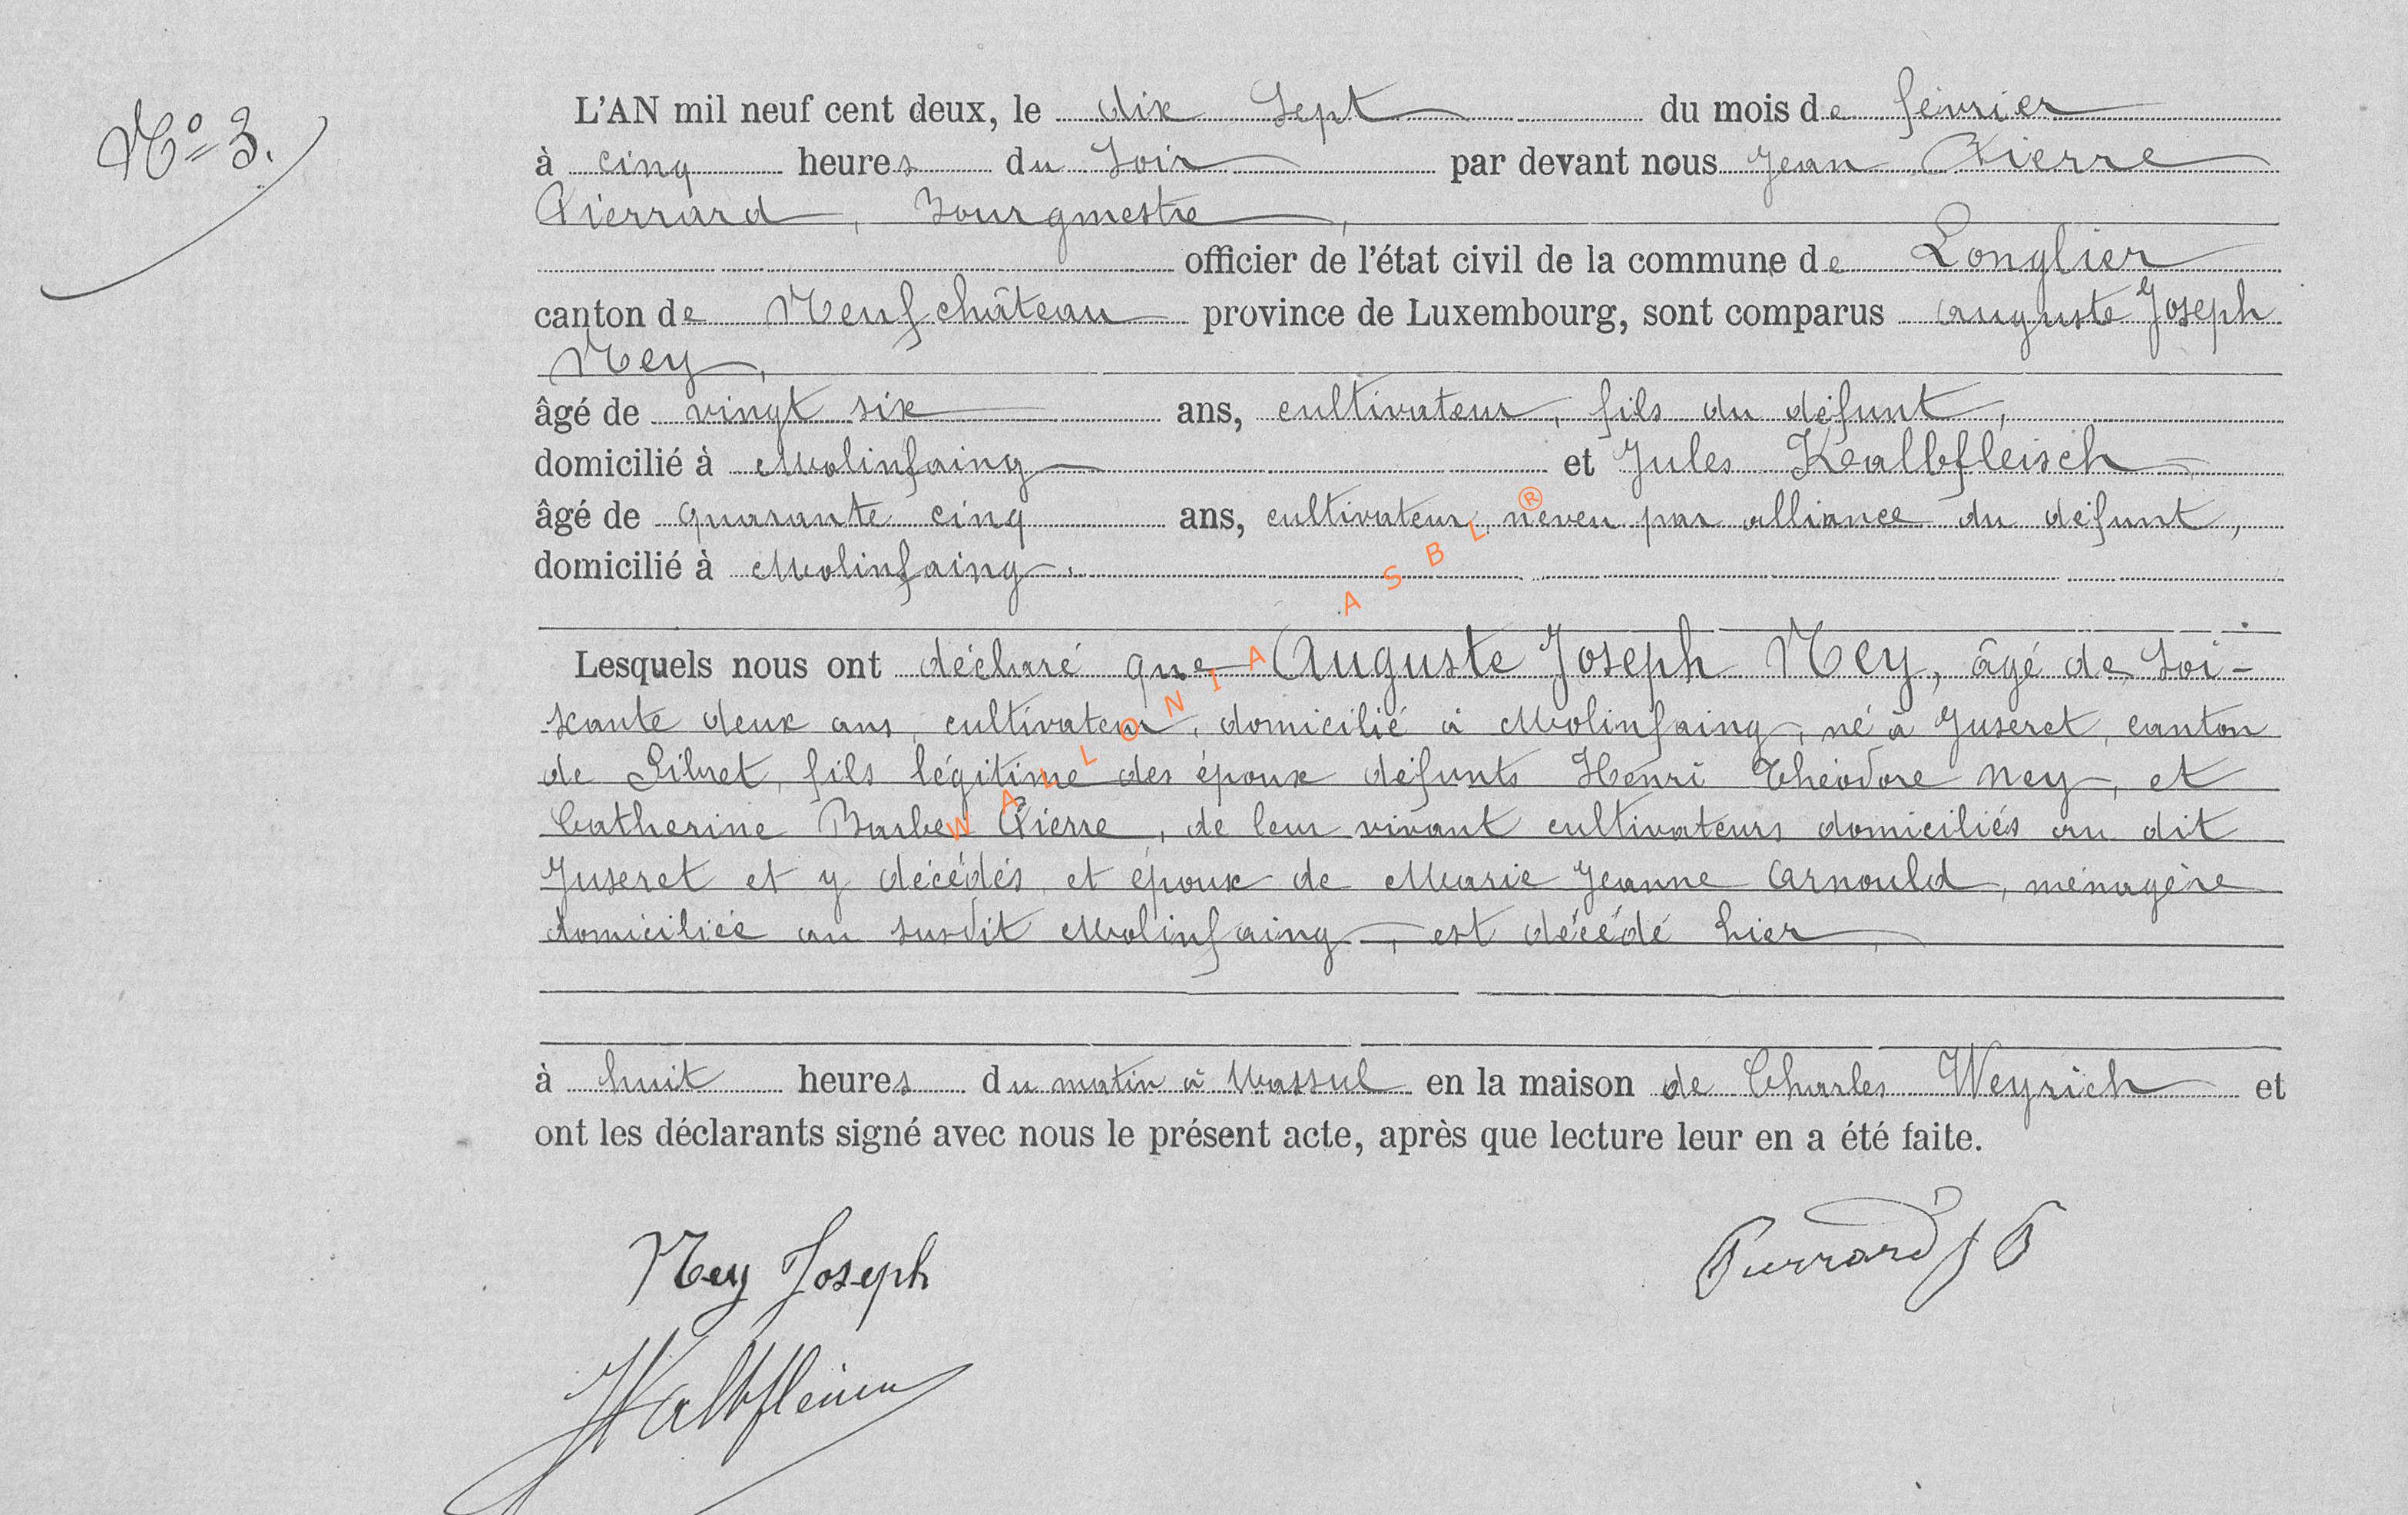 N° 3.
L'AN mil neuf cent deux, le dix sept du mois de février
à cinq heures du soir par devant nous Jean Pierre
Pierrard, Bourgmestre,
officier de l'état civil de la commune de Longlier
canton de Neufchâteau province de Luxembourg, sont comparus Auguste Joseph
Ney,
âgé de vingt six ans, cultivateur, fils du défunt,
domicilié à Molinfaing et Jules Kalbfleisch
âgé de quarante cinq ans, cultivateur, neveu par alliance du défunt,
domicilié à Molinfaing.
Lesquels nous ont déclaré que Auguste Joseph Ney, âgé de soi-
xante deux ans, cultivateur, domicilié à Molinfaing, né à Juseret, canton
de Sibret, fils légitime des époux défunts Henri Théodore Ney, et
Catherine Barbe Pierre, de leur vivant cultivateurs domiciliés au dit
Juseret et y décédés et époux de Marie Jeanne Arnould, ménagère
domiciliée au susdit Molinfaing, est décédé hier,
à huit heures du matin à Massul en la maison de Charles Weyrich et
ont les déclarants signé avec nous le présent acte, après que lecture leur en a été faite.
Ney Joseph
Pierrard J P
J Kalbfleisch
WALLONIA ASBL ®